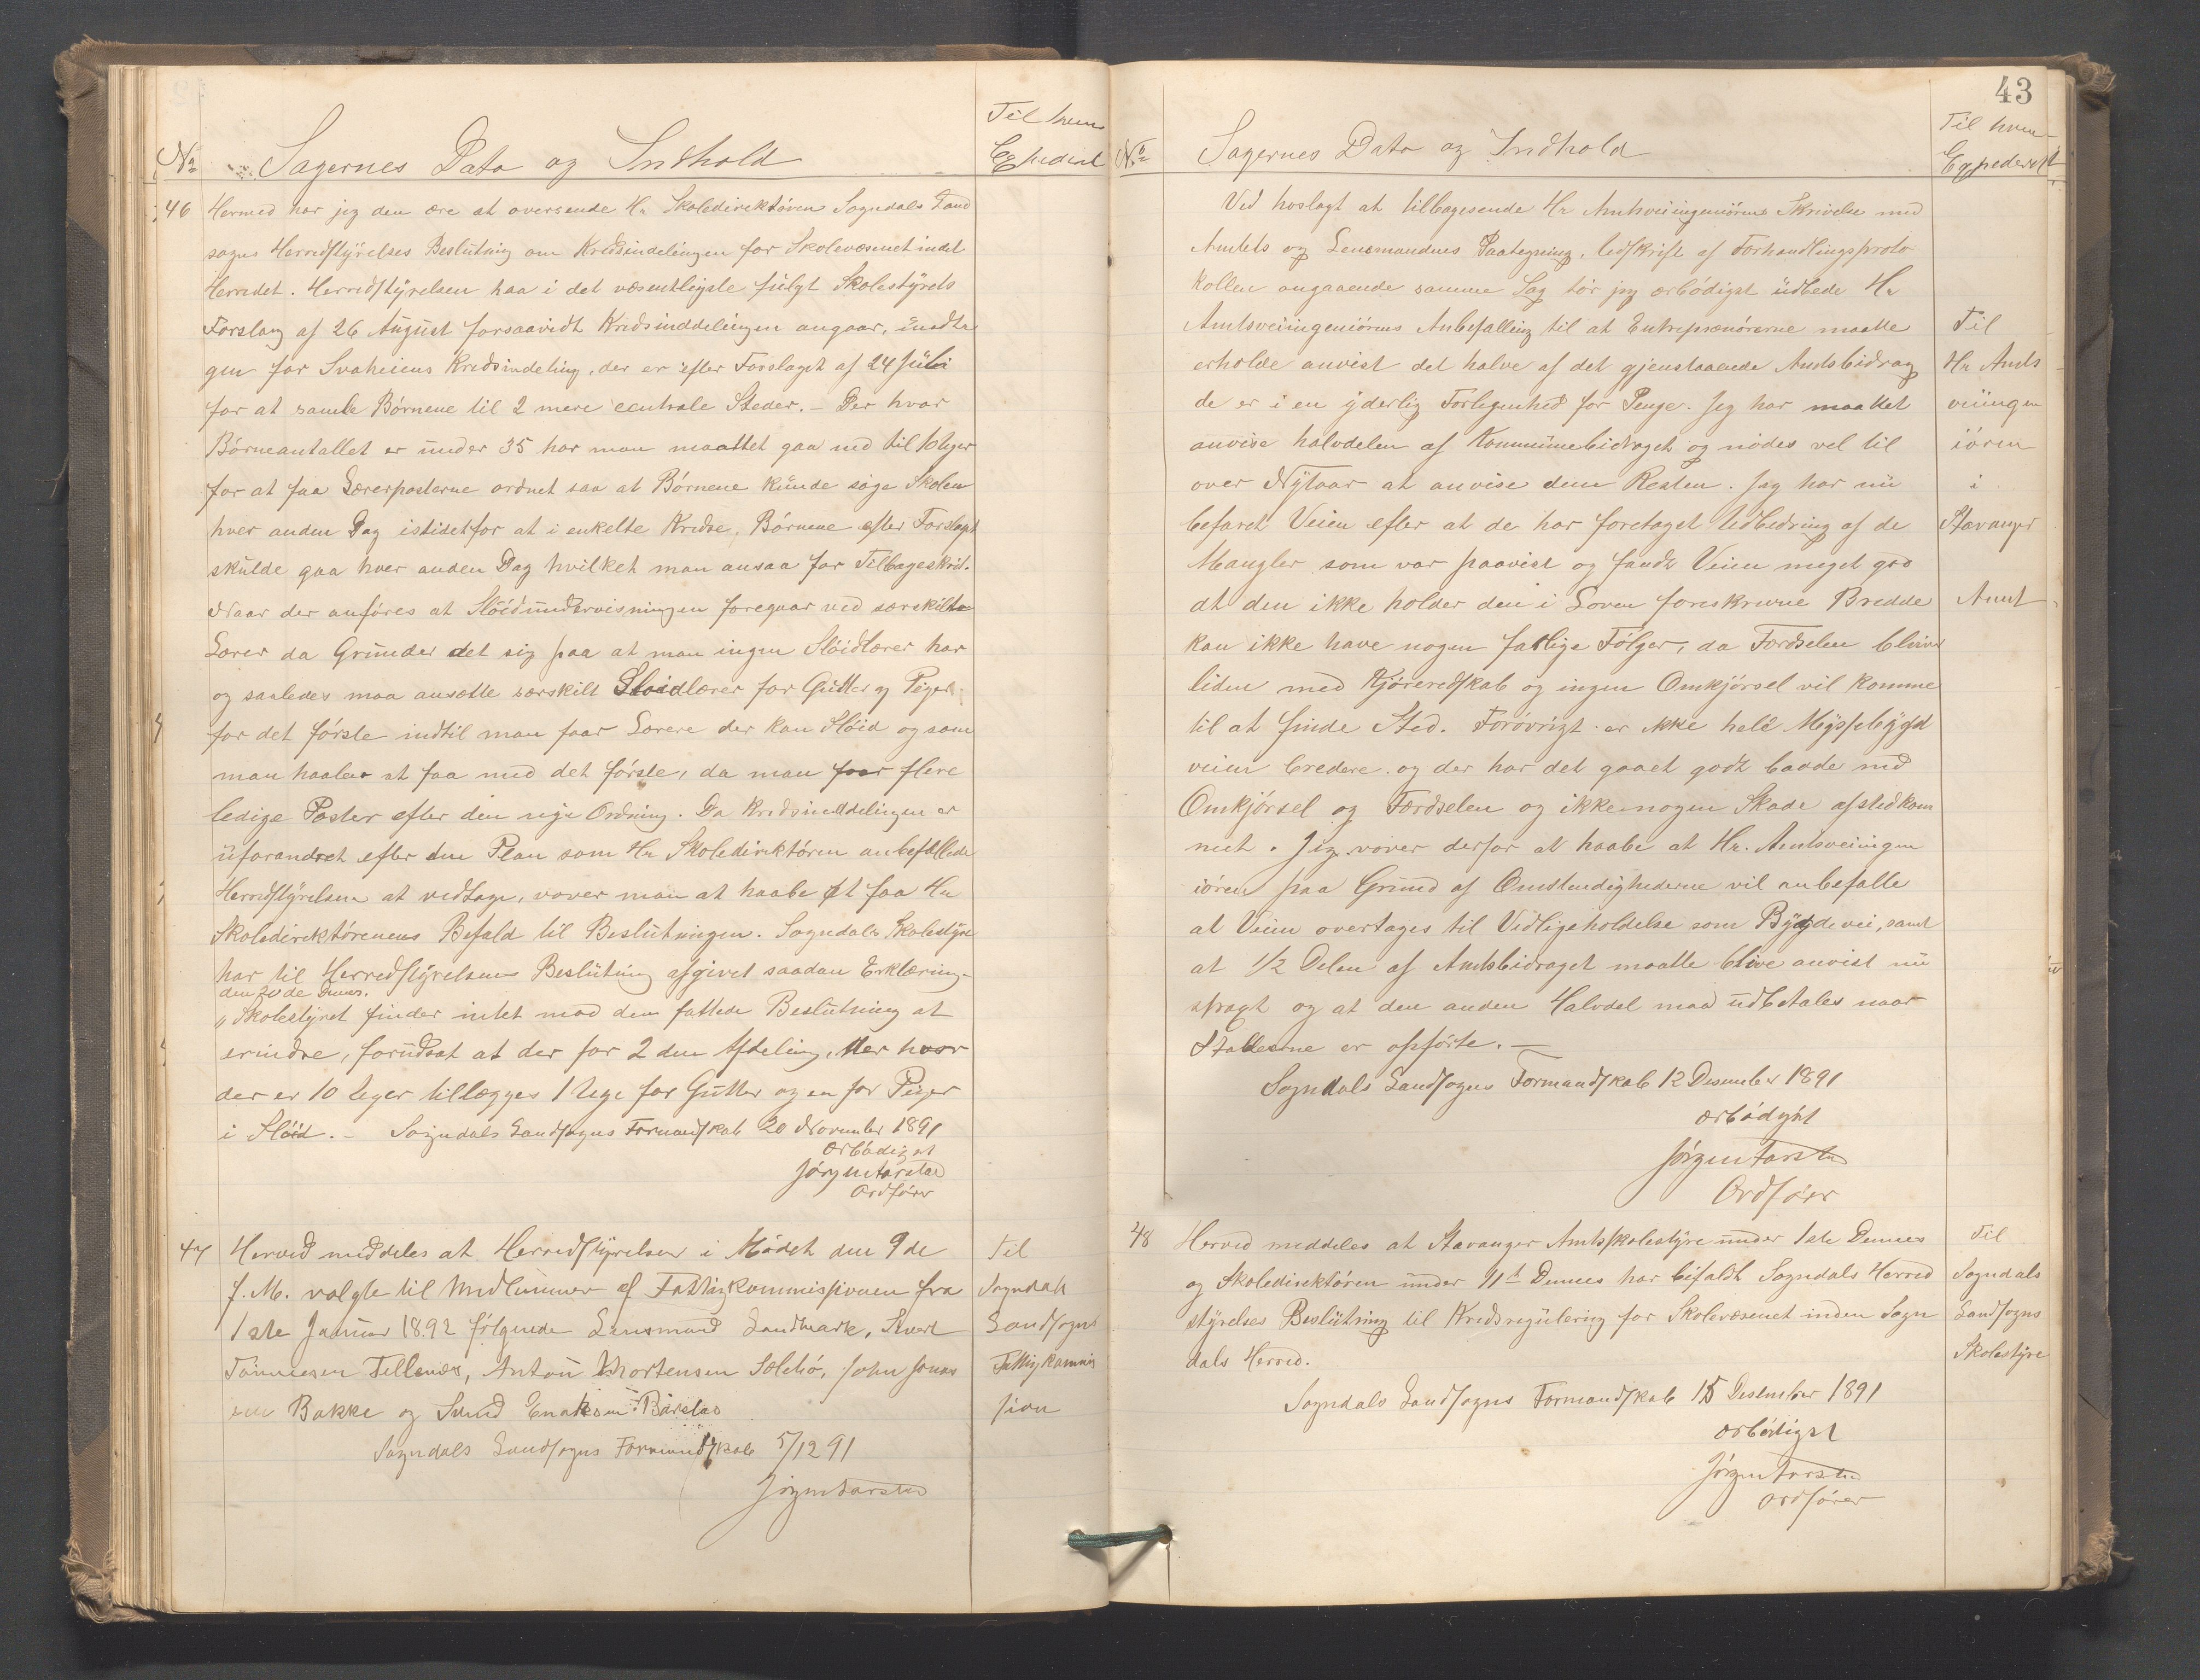 Til hvem
No Sagernes Dato og Indhold Expederet
46 Hermed har jeg den ære at oversende Hr Skoledirektören Sogndals Land
sogns Herredstyrelses Beslutning om Kredsindelingen for Skolevæsenet indet
Herredet. Herredstyrelsen haa i det væsentligste fulgt Skolestyrets
Forslag af 26 August forsaavidt Kredsinddelingen angaar, undta
gen for Svaheiens Kredsindeling, der er efter Forslaget af 24 Juli
for at samle Börnene til 2 mere centrale Steder. – Der hvor
Börneantallet er under 35 har man maattet gaa ned til 10 Uger
for at faa Lærerposterne ordnet saa at Börnene kunde söge Skolen
hver anden Dag istidetfor at i enkelte Kredse, Börnene efter Forslaget
skulde gaa hver anden Dag hvilket man ansaa for Tilbageskridt.
Naar der anföres at Slöidundervisningen foregaar ved særskilte
Lærer da Grunder det sig paa at man ingen Slöidlærer har
og saaledes maa ansætte særskilt Sloidlærer for Gutter og Piger
for det förste indtil man faar Lærere der kan Slöid og som
man haaber at faa med det förste, da man faar flere
ledige Poster efter den nye Ordning. Da Kredsinddelingen er
uforandret efter den Plan som Hr Skoledirektören anbefallede
Herredstyrelsen at vedtage, vover man at haabe at faa Hr
Skoledirektörenens Bifald til Beslutningen. Sogndals Skolestyre
har til Herredstyrelsens Beslutning afgivet saadan Erklæring
den 20de Dennes.
"Skolestyret finder intet mod den fattede Beslutning at
erindre, forudsat at der for 2den Afdeling, der hvor
der er 10 Uger tillægges 1 Uge for Gutter og en for Piger
i Slöid. – Sogndals Landsogns Formandskab 20 November 1891
ærbödigst
Jörgen Tarstad
Ordförer
47 Herved meddeles at Herredstyrelsen i Mödet den 9de Til
f. M. valgte til Medlemmer af Fattigkommissionen fra Sogndals
1ste Januar 1892 fölgende Lensmand Landmark, Sivert Landsogns
Tönnesen Tellenæs, Anton Mortensen Sölebö, John Jonas Fattigkommis
sen Bakke og Svend Barstad sion
Sogndals Landsogns Formandskab 5/12 91
Jörgen Tarstad
43
Til hvem
No Sagernes Dato og Indhold Expederet
Ved hoslagt at tilbagesende Hr Amtsveiingeniörens Skrivelse med
Amtets og Lensmandens Paategning, Udskrift af Forhandlingsproto
kollen angaaende samme Sag tör jeg ærbödigst udbede Hr
Amtsveiingeniörens Anbefalling til at Entreprenörerne maatte Til
erholde anvist det halve af det gjenstaaende Amtsbidrag Hr Amts
de er i en yderlig Forlegenhed for Penge. Jeg har maattet veiingen
anvise halvdelen af Kommunebidraget og nödes vel til iören
over Nytaar at anvise dem Resten. Jeg har nu i
befaret Veien efter at de har foretaget Udbedring af de Stavanger
Mangler som var paavist og fandt Veien meget god
at den ikke holder den i Loven foreskrevne Bredde Amt
kan ikke have nogen farlige Fölger, da Færdselen bliver
liden med Kjöreredskab og ingen Omkjörsel vil komme
til at finde Sted. Forövrigt er ikke hele Myssebygd
veien bredere og der har det gaaet godt baade med
Omkjörsel og Færdselen og ikke nogen Skade afstedkom
met. Jeg vover derfor at haabe at Hr. Amtsveiingen
iören paa Grund af Omstendighederne vil anbefalle
at Veien overtages til Vedligeholdelse som Bygdevei, samt
at 1/2 Delen af Amtsbidraget maatte blive anvist nu
straxt og at den anden Halvdel maa udbetales naar
Stabberne er opförte. –
Sogndals Landsogns Formandskab 12 Desember 1891
ærbödigst
Jörgen Tarstad
Ordförer
48 Herved meddeles at Stavanger Amtsskolestyre under 1ste Dennes Til
og Skoledirektören under 11te Dennes har bifaldt Sogndals Herred Sogndals
styrelses Beslutning til Kredsregulering for Skolevæsenet inden Sogn Landsogns
dals Herred. Skolestyre
Sogndals Landsogns Formandskab 15 Desember 1891
ærbödigst
Jörgen Tarstad
Ordförer